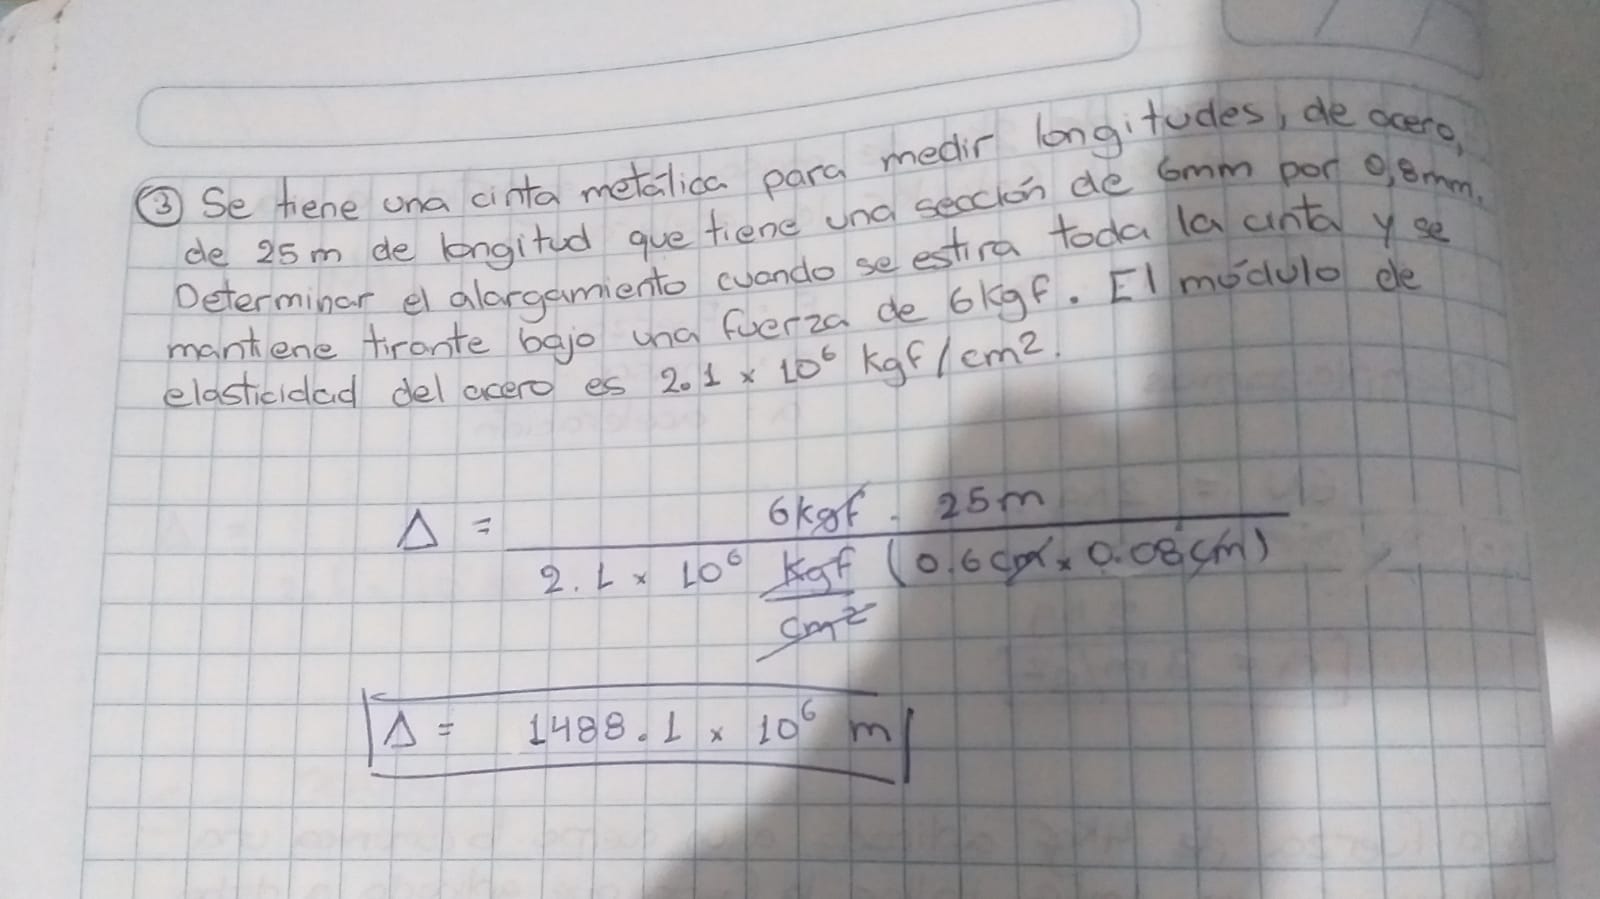 ③ Se tiene una cinta metálica para medir longitudes, de acero,
de 25 m de longitud que tiene una sección de 6mm por 0,8mm.
Determinar el alargamiento cuando se estira toda la cinta y se
mantiene tirante bajo una fuerza de 6kgf. El módulo de
elasticidad del acero es 2.1 × 10⁶ kgf/cm².
Δ = 6kgf . 25m
2.1 × 10⁶ kgf/cm² (0.6cm × 0.08cm)
Δ = 1488.1 × 10⁶ m